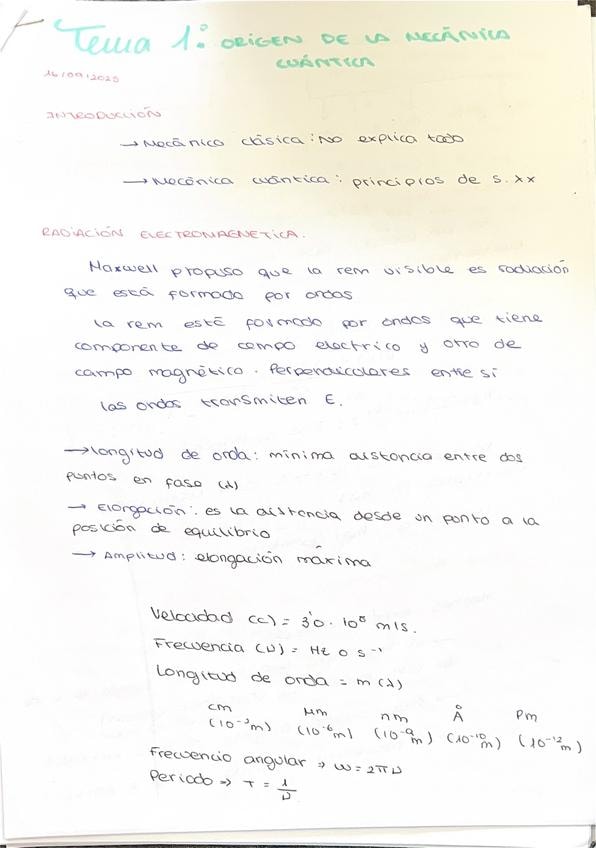 Tema 1: ORIGEN DE LA MECÁNICA
CUÁNTICA
16/09/2025
INTRODUCCIÓN
→ Mecánica clásica: No explica todo
→ Mecánica cuántica: principios de s. XX
RADIACIÓN ELECTROMAGNETICA.
Maxwell propuso que la rem visible es radiación
que está formada por ondas
La rem está formada por ondas que tiene
componente de campo electrico y otro de
campo magnético. Perpendiculares entre sí
Las ondas transmiten E.
→ Longitud de onda: mínima distancia entre dos
puntos en fase (λ)
→ Elongación: es la distancia desde un punto a la
posición de equilibrio
→ Amplitud: elongación máxima
Velocidad (c) = 3'0 · 10⁸ m/s.
Frecuencia (ν) = Hz o s⁻¹
Longitud de onda = m (λ)
cm μm nm Å pm
(10⁻²m) (10⁻⁶m) (10⁻⁹m) (10⁻¹⁰m) (10⁻¹²m)
Frecuencia angular → ω = 2πν
Periodo → T = 1/ν